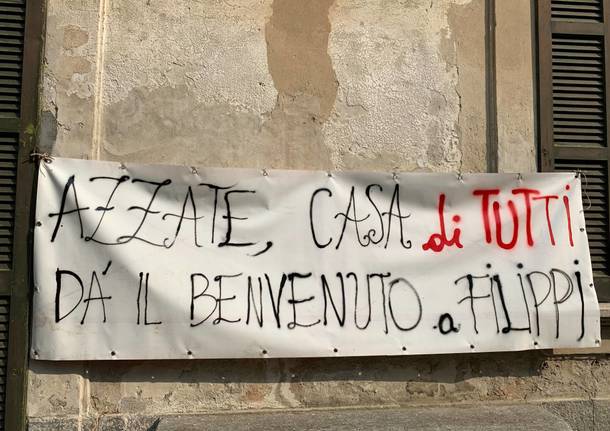 AZZATE, CASA di TUTTI
DÁ IL BENVENUTO a FILIPPI